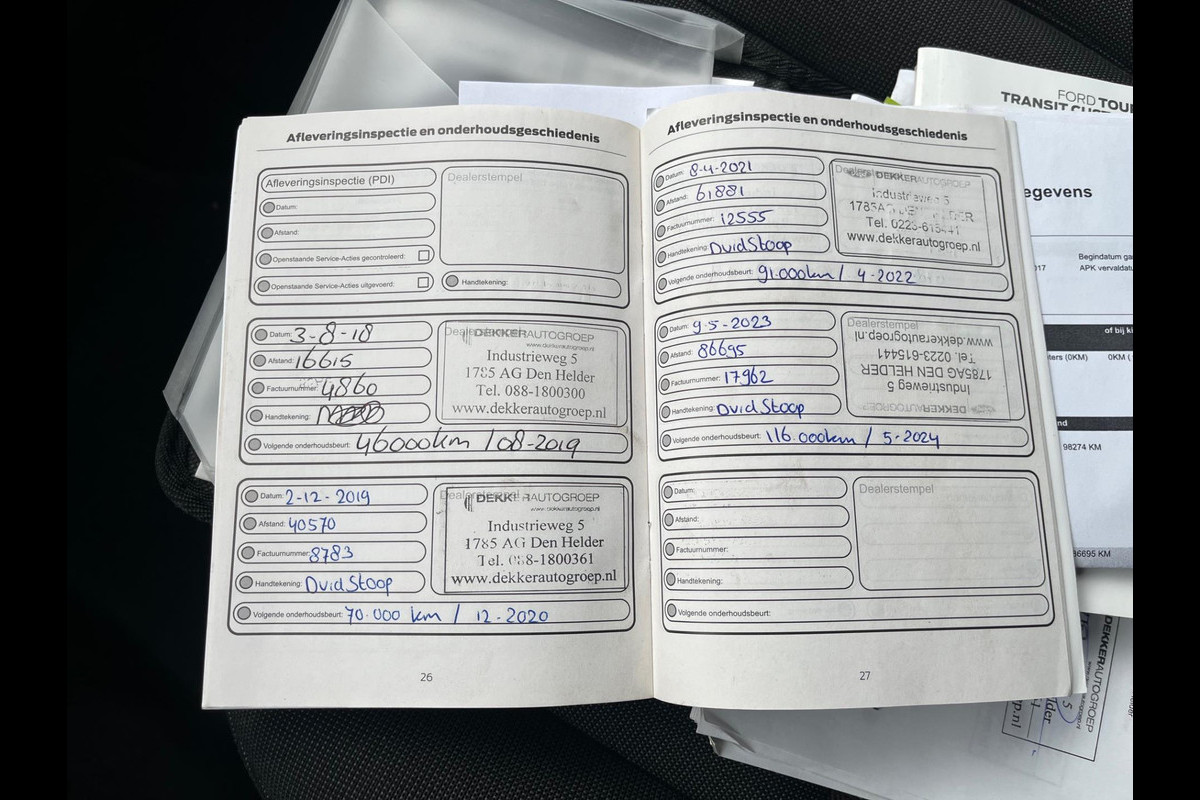 Afleveringsinspectie en onderhoudsgeschiedenis
Afleveringsinspectie (PDI)
Datum:
Afstand:
Openstaande Service-Acties gecontroleerd:
Openstaande Service-Acties uitgevoerd:
Dealerstempel
Handtekening:
Datum: 3-8-18
Afstand: 16615
Factuurnummer: 4860
Handtekening:
Volgende onderhoudsbeurt: 46000km / 08-2019
DEKKERAUTOGROEP
www.dekkerautogroep.nl
Industrieweg 5
1785 AG Den Helder
Tel. 088-1800300
www.dekkerautogroep.nl
Datum: 2-12-2019
Afstand: 40570
Factuurnummer: 8783
Handtekening: DvidStoop
Volgende onderhoudsbeurt: 70.000 km / 12-2020
AUTOGROEP
www.dekkerautogroep.nl
Industrieweg 5
1785 AG Den Helder
Tel. 088-1800361
www.dekkerautogroep.nl
26
Afleveringsinspectie en onderhoudsgeschiedenis
Datum: 8-4-2021
Afstand: 61881
Factuurnummer: 12555
Handtekening: DvidStoop
Volgende onderhoudsbeurt: 91.000km / 4-2022
DEKKERAUTOGROEP
Industrieweg 5
1785AG DEN HELDER
Tel. 0223-615441
www.dekkerautogroep.nl
Datum: 9-5-2023
Afstand: 86695
Factuurnummer: 17962
Handtekening: DvidStoop
Volgende onderhoudsbeurt: 116.000km / 5-2024
Dealerstempel
DEKKERAUTOGROEP
Industrieweg 5
1785AG DEN HELDER
Tel. 0223-615441
www.dekkerautogroep.nl
Datum:
Afstand:
Factuurnummer:
Handtekening:
Volgende onderhoudsbeurt:
Dealerstempel
27
FORD TOUR
TRANSIT
egevens
Begindatum ga
017 APK vervaldatu
of bij ki
ters (0KM) 0KM (
nd
98274 KM
86695 KM
DEKKERAUTOGROEP